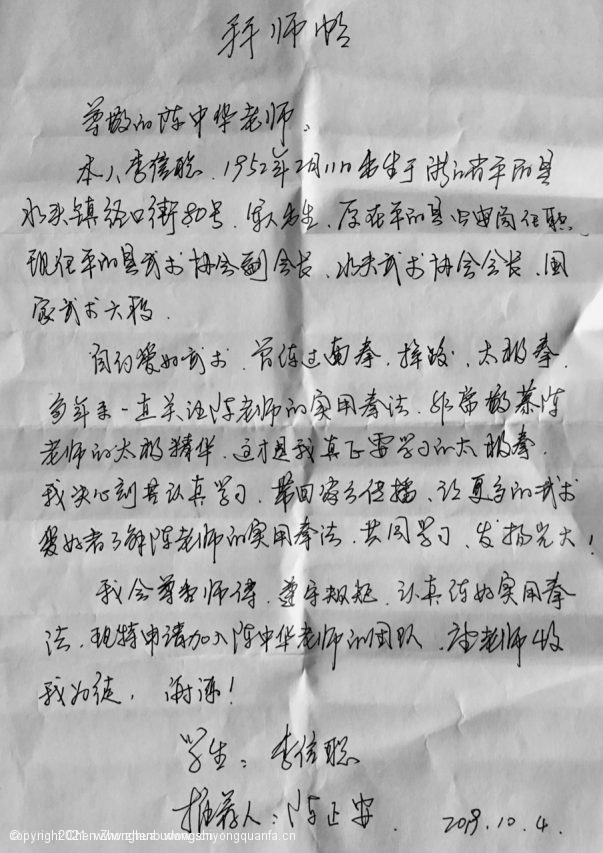 拜师帖
尊敬的陈中华老师、
本人李信聪、1952年2月11日出生于浙江省平阳县
水头镇径口街80号、军人出生、原在平阳县公安局任职、
现任平阳县武术协会副会长、水头武术协会会长、国
家武术六段.
自幼爱好武术、曾练过南拳、摔跤、太极拳、
多年来一直关注陈老师的实用拳法、非常敬慕陈
老师的太极精华、这才是我真正要学习的太极拳.
我决心刻苦认真学习、带回家乡传播、让更多的武术
爱好者了解陈老师的实用拳法、共同学习、发扬光大!
我会尊重师傅、遵守规矩、认真练好实用拳
法、现特申请加入陈中华老师的团队、请老师收
我为徒, 谢谢!
学生: 李信聪
推荐人: 陈正安. 2019.10.4.